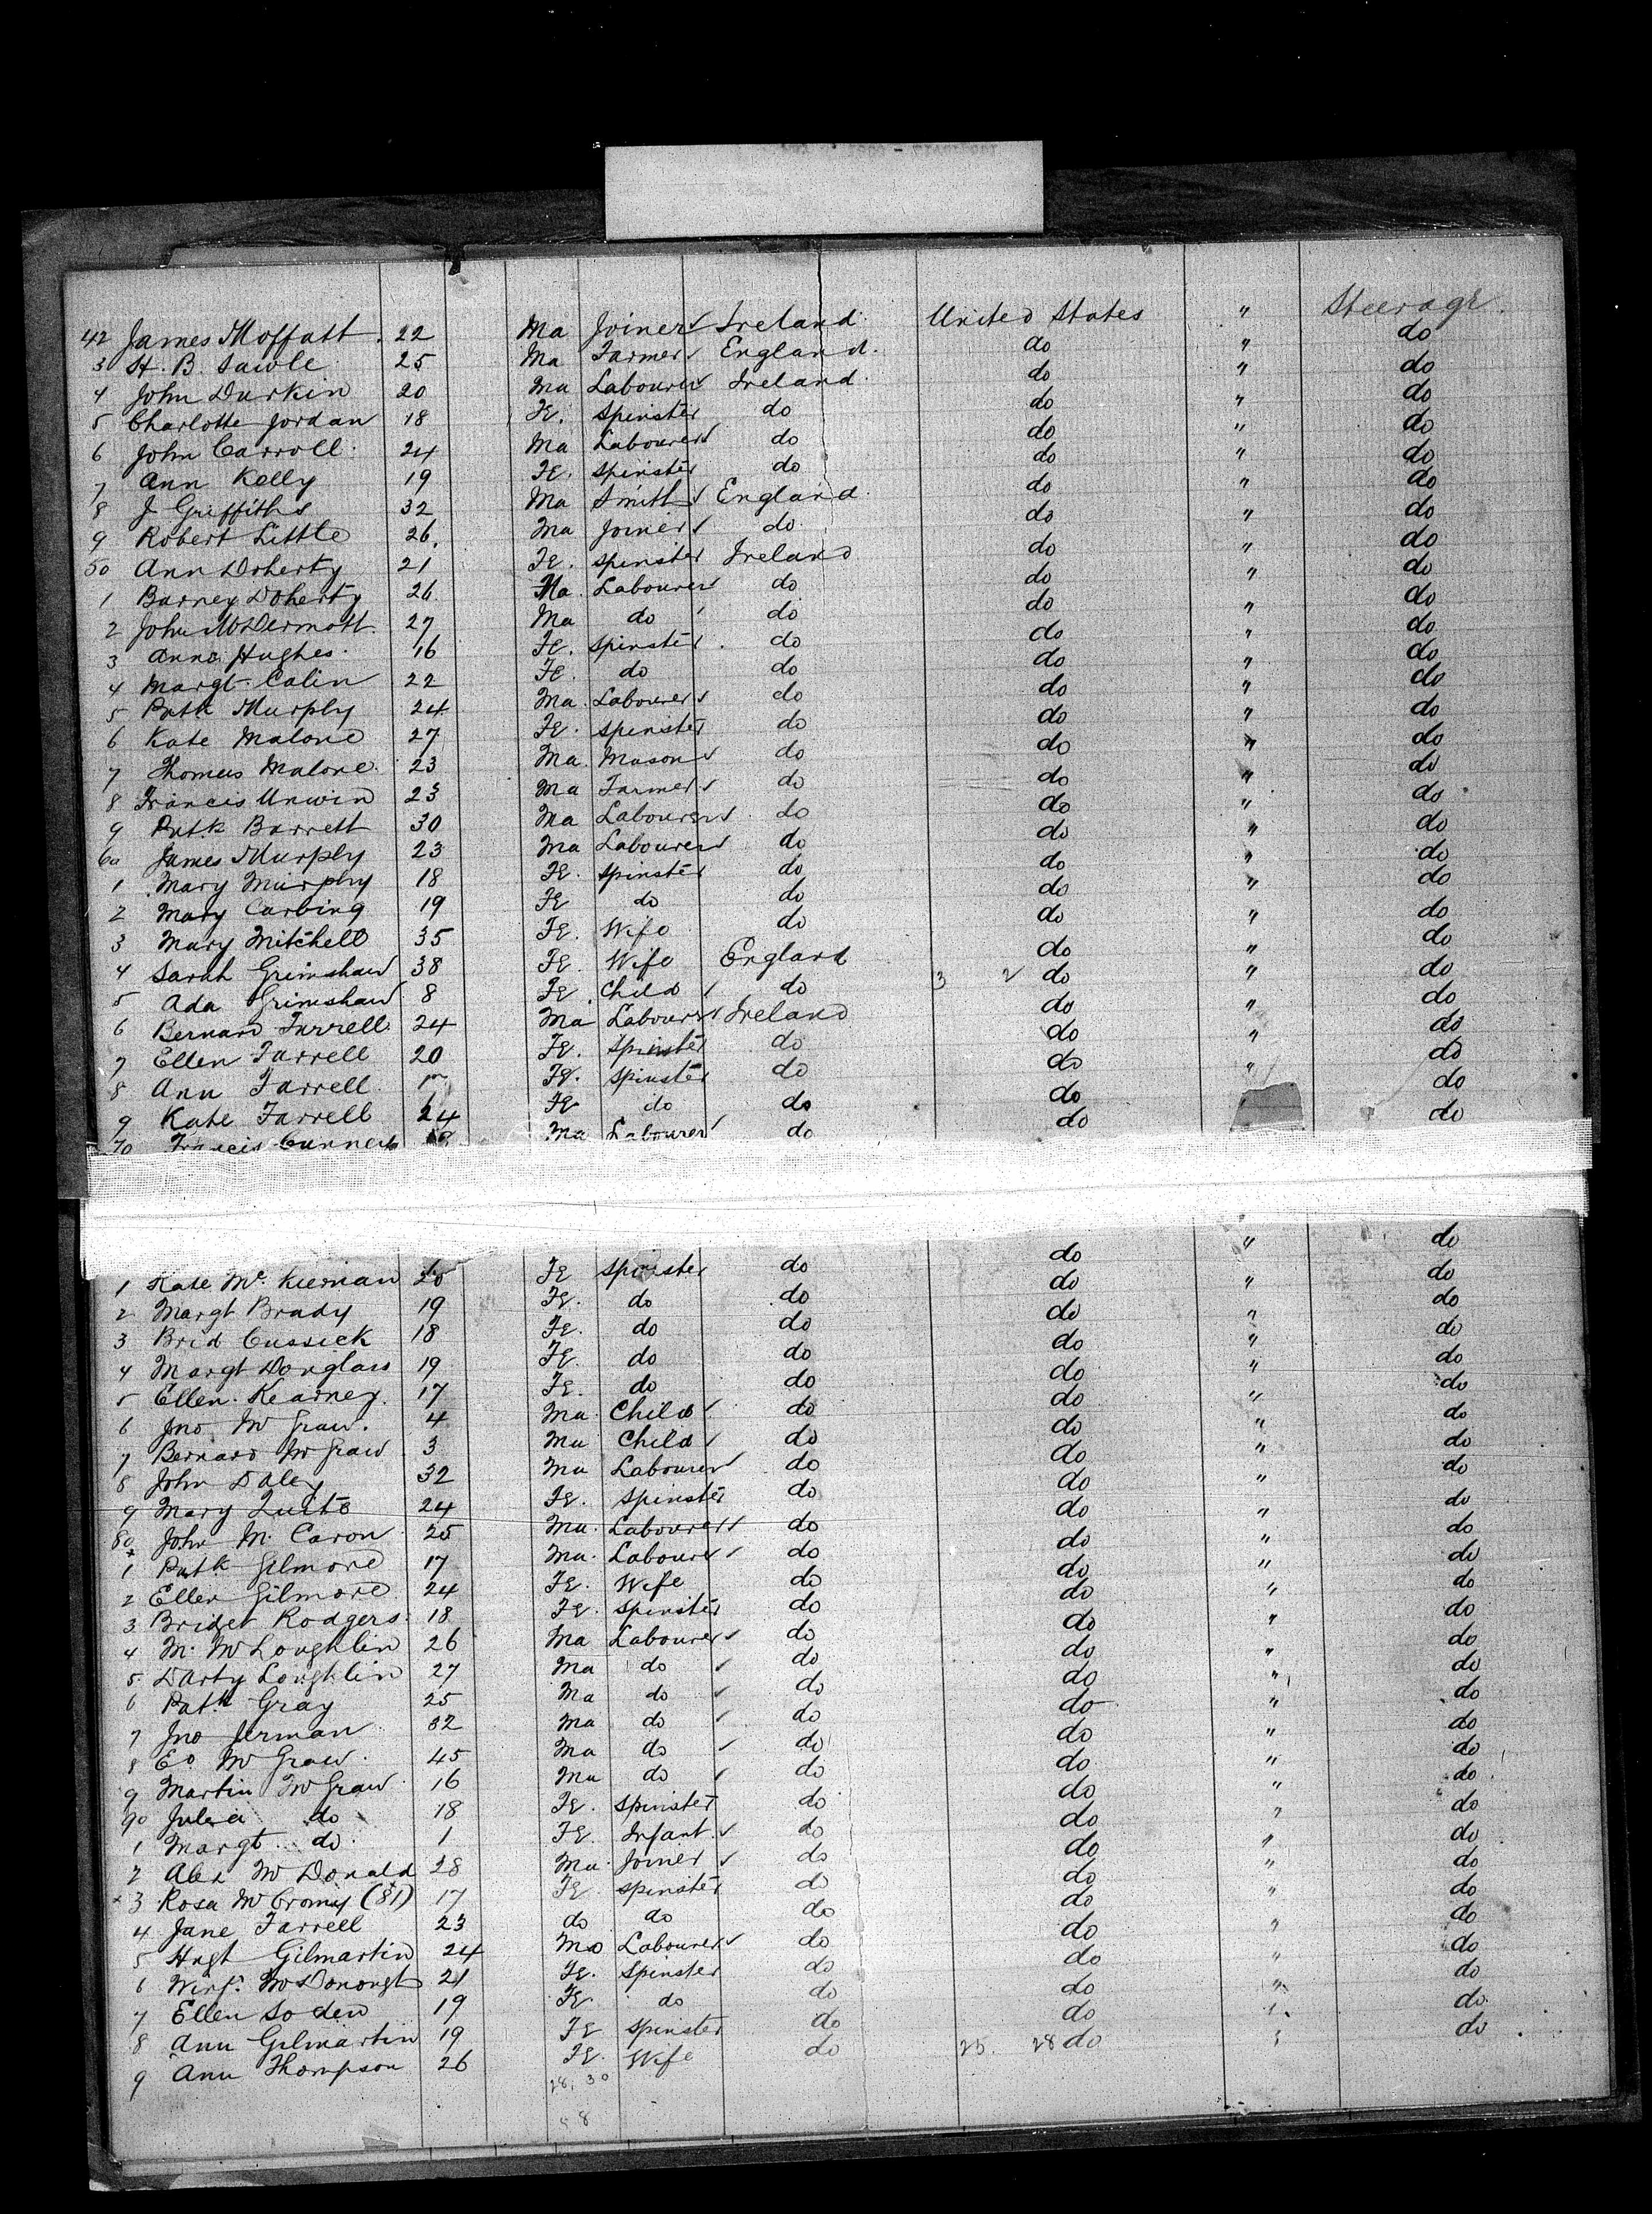 42 James Moffatt. 22 Ma Joiner Ireland United States " Steerage.
3 H. B. Sawle 25 Ma Farmer England. do " do
4 John Durkin 20 Ma Labourer Ireland. do " do
5 Charlotte Jordan 18 Fe. Spinster do do " do
6 John Carroll. 24 Ma Labourer do do " do
7 Ann Kelly 19 Fe. Spinster do do " do
8 J Griffiths 32 Ma Smith England. do " do
9 Robert Little 26. Ma Joiner do. do " do
50 Ann Doherty 21 Fe. Spinster Ireland do " do
1 Barney Doherty 26 Ma. Labourer do do " do
2 John McDermott. 27 Ma do do do " do
3 Hughes. 16 Fe. Spinster. do do " do
4 Margt. Calin 22 Fe. do do do " do
5 Patk Murphy 24 Ma. Labourer do do " do
6 Kate Malone 27 Fe. Spinster do do " do
7 Thomas Malone. 23 Ma. Mason do do " do
8 Francis Unwin 23 Ma Farmer do do " do
9 Patk Barrett 30 Ma Labourer do do " do
60 James Murphy 23 Ma Labourer do do " do
1 Mary Murphy 18 Fe. Spinster do do " do
2 Mary Carbing 19 Fe do do do " do
3 Mary Mitchell 35 Fe. Wife do do " do
4 Sarah Grimshaw 38 Fe. Wife England do " do
5 Ada Grimshaw 8 Fe. Child do 3 2 do " do
6 Bernard Farrell. 24 Ma Labourer Ireland do " do
7 Ellen Farrell 20 Fe. Spinster do do " do
8 Ann Farrell Fe. Spinster do do " do
9 Kate Farrell 24 Fe do do do do
70 Francis 18 Ma Labourer do do do
1 Kate Mc. Kiernan 20 Fe Spinster do do " do
2 Margt Brady 19 Fe. do do do " do
3 Brid Cussick 18 Fe. do do do " do
4 Margt Douglass 19 Fe. do do do " do
5 Ellen. Kearney. 17 Fe. do do do " do
6 Jno. McGraw. 4 Ma. Child do do " do
7 Bernard McGraw 3 Ma Child do do " do
8 John Daley 32 Ma Labourer do do " do
9 Mary 24 Fe. Spinster do do " do
80 John M. Caron 25 Ma. Labourer do do " do
1 Patk Gilmore 17 Ma. Labourer do do " do
2 Ellen Gilmore 24 Fe. Wife do do " do
3 Bridget Rodgers. 18 Fe. Spinster do do " do
4 M. McLoughlin 26 Ma Labourer do do " do
5 Darty Loughlin 27 Ma do do do " do
6 Patk Gray 25 Ma do do do " do
7 Jno Jerman 32 Ma do do do " do
8 Ed McGraw. 45 Ma do do do " do
9 Martin McGraw 16 Ma do do do " do
90 Julia do 18 Fe. Spinster do do " do
1 Margt do 1 Fe. Infant. do do " do
2 Alex McDonald 28 Ma. Joiner do do " do
x 3 Rosa McCromy (81) 17 Fe. Spinster do do " do
4 Jane Farrell 23 do do do do " do
5 Hugh Gilmartin 24 Ma Labourer do do " do
6 Winf. McDonough 21 Fe. Spinster do do " do
7 Ellen Soden 19 Fe do do do " do
8 Ann Gilmartin 19 Fe Spinster do do do
9 Ann Thompson 26 Fe. Wife do 25. 28 do do
28, 30
58